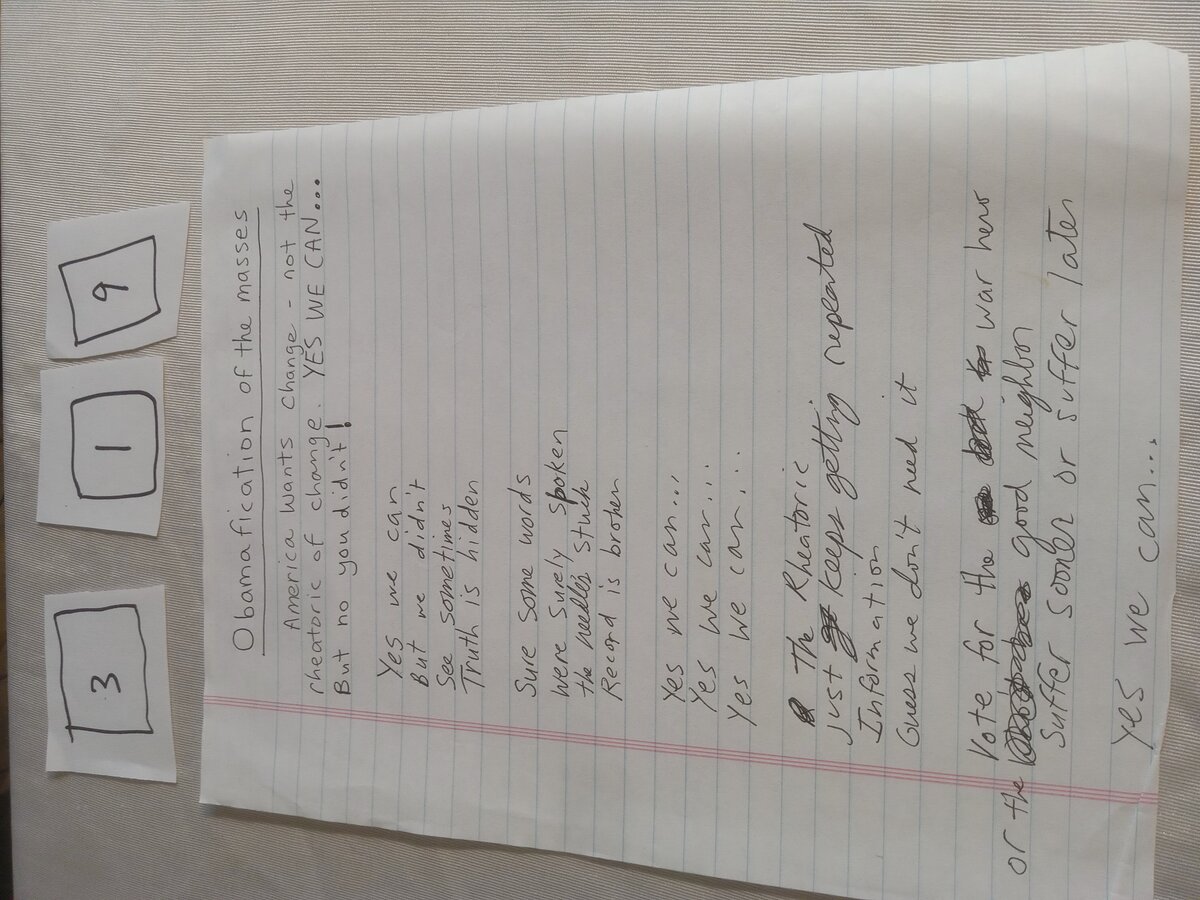 3 1 9
Obamafication of the masses
America wants change - not the
rheatoric of change. YES WE CAN...
But no you didn't!
Yes we can
But we didn't
See sometimes
Truth is hidden
Sure some words
were surely spoken
the needles stuck
Record is broken
Yes we can...
Yes we can...
Yes we can...
the Rheatoric
just keeps getting repeated
Information
Guess we don't need it
Vote for the war hero
or the good neighbor
Suffer sooner or suffer later
Yes we can...